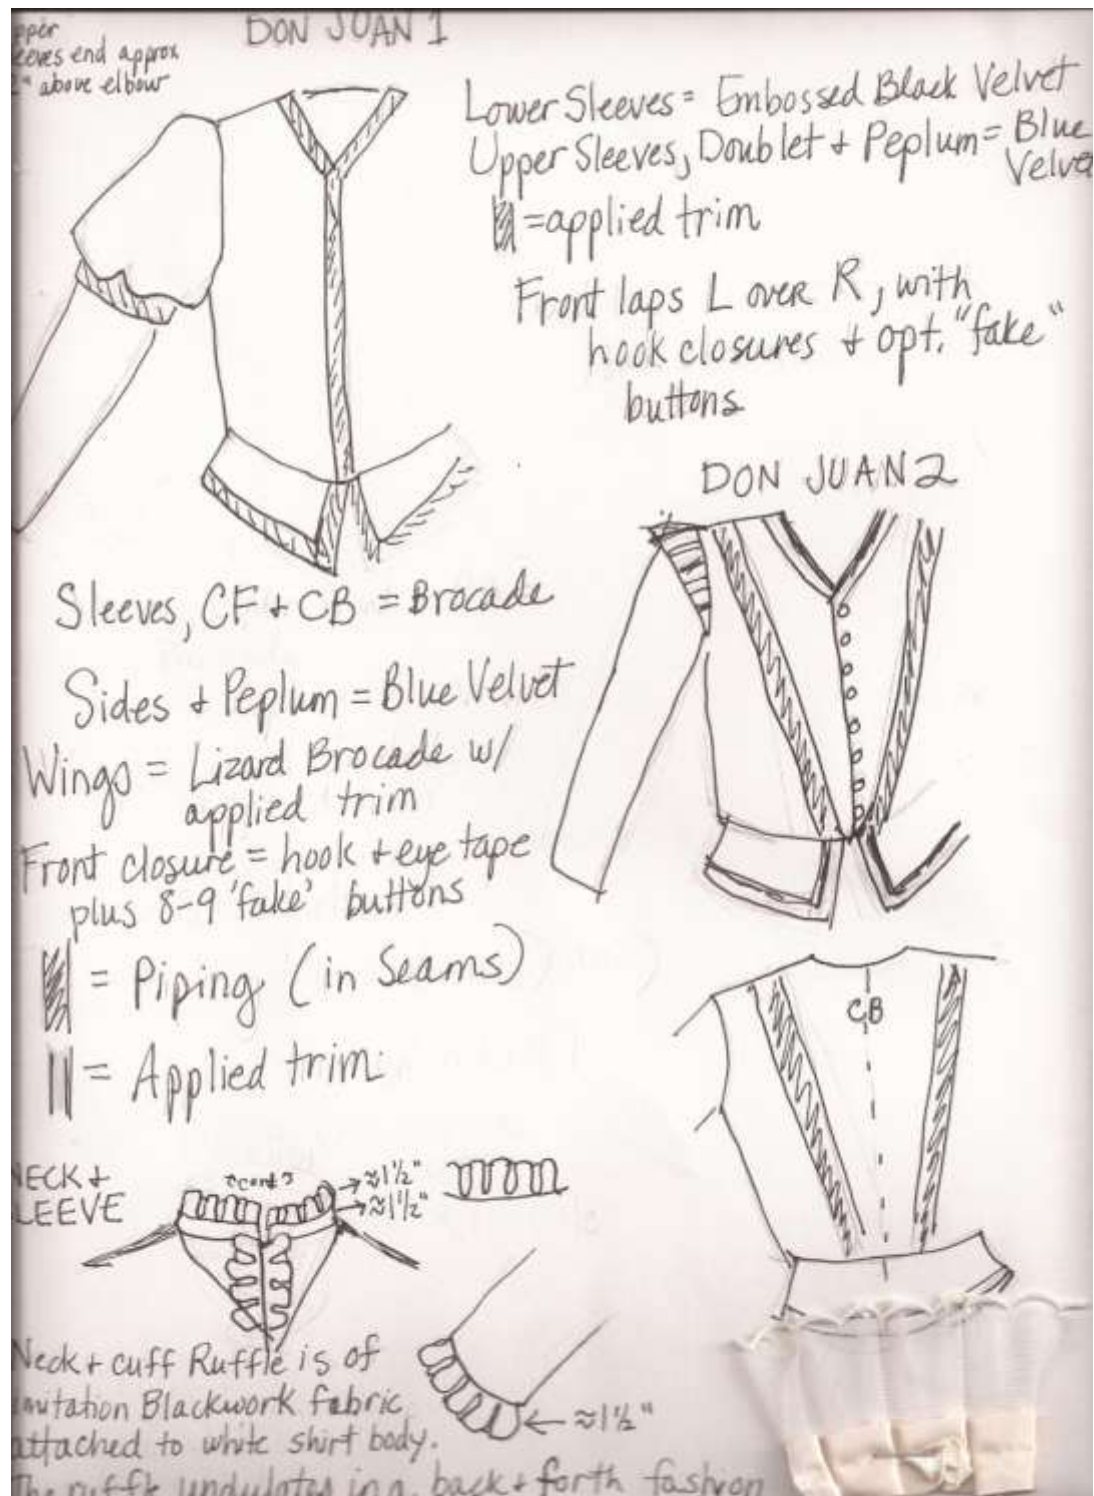 DON JUAN 1
pper
eeves end approx
2" above elbow
Lower Sleeves = Embossed Black Velvet
Upper Sleeves, Doublet + Peplum = Blue
Velvet
= applied trim
Front laps L over R, with
hook closures + opt. "fake"
buttons
DON JUAN 2
Sleeves, CF + CB = Brocade
Sides + Peplum = Blue Velvet
Wings = Lizard Brocade w/
applied trim
Front closure = hook + eye tape
plus 8-9 'fake' buttons
= Piping (in seams)
= Applied trim
CB
NECK +
LEEVE
cont
≈1½"
≈1½"
Neck + cuff Ruffle is of
imitation Blackwork fabric
attached to white shirt body.
≈1½"
The ruffle undulates in a back + forth fashion